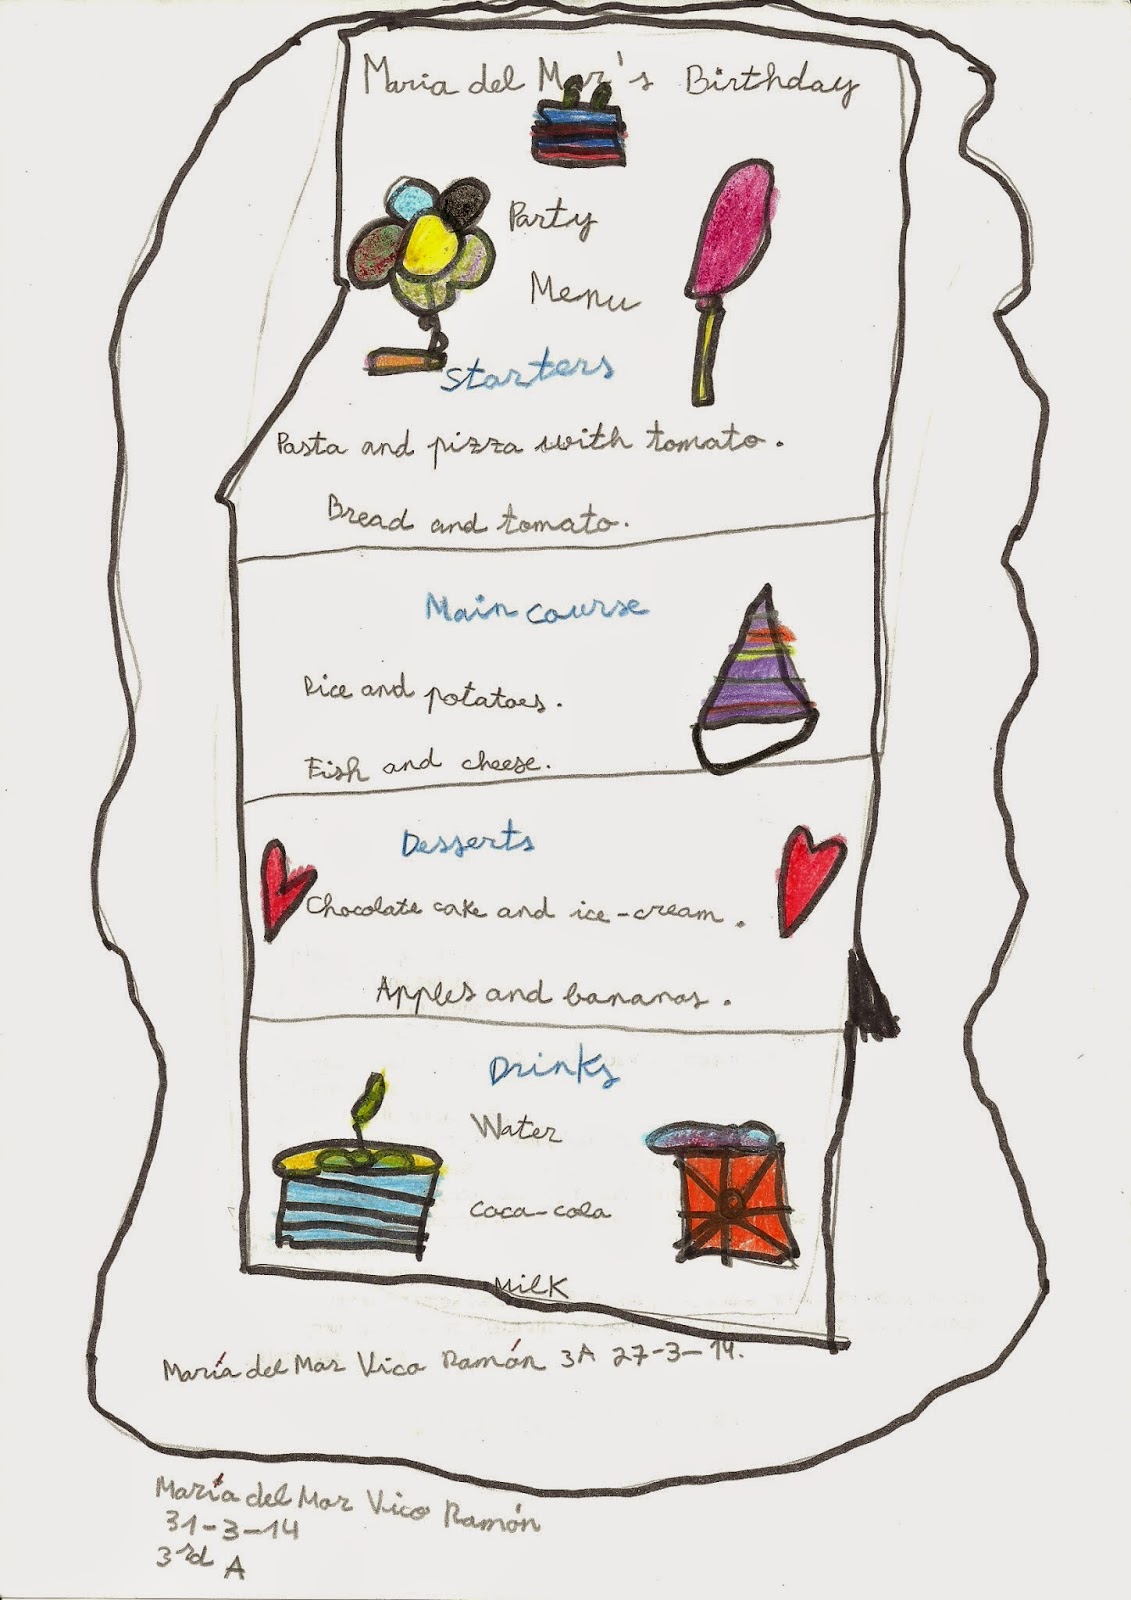 Maria del Mar's Birthday
Party
Menu
Starters
Pasta and pizza with tomato.
Bread and tomato.
Main course
Rice and potatoes.
Fish and cheese.
Desserts
Chocolate cake and ice-cream.
Apples and bananas.
Drinks
Water
coca-cola
Milk
María del Mar Vico Ramón 3A 27-3-14.
María del Mar Vico Ramón
31-3-14
3rd A